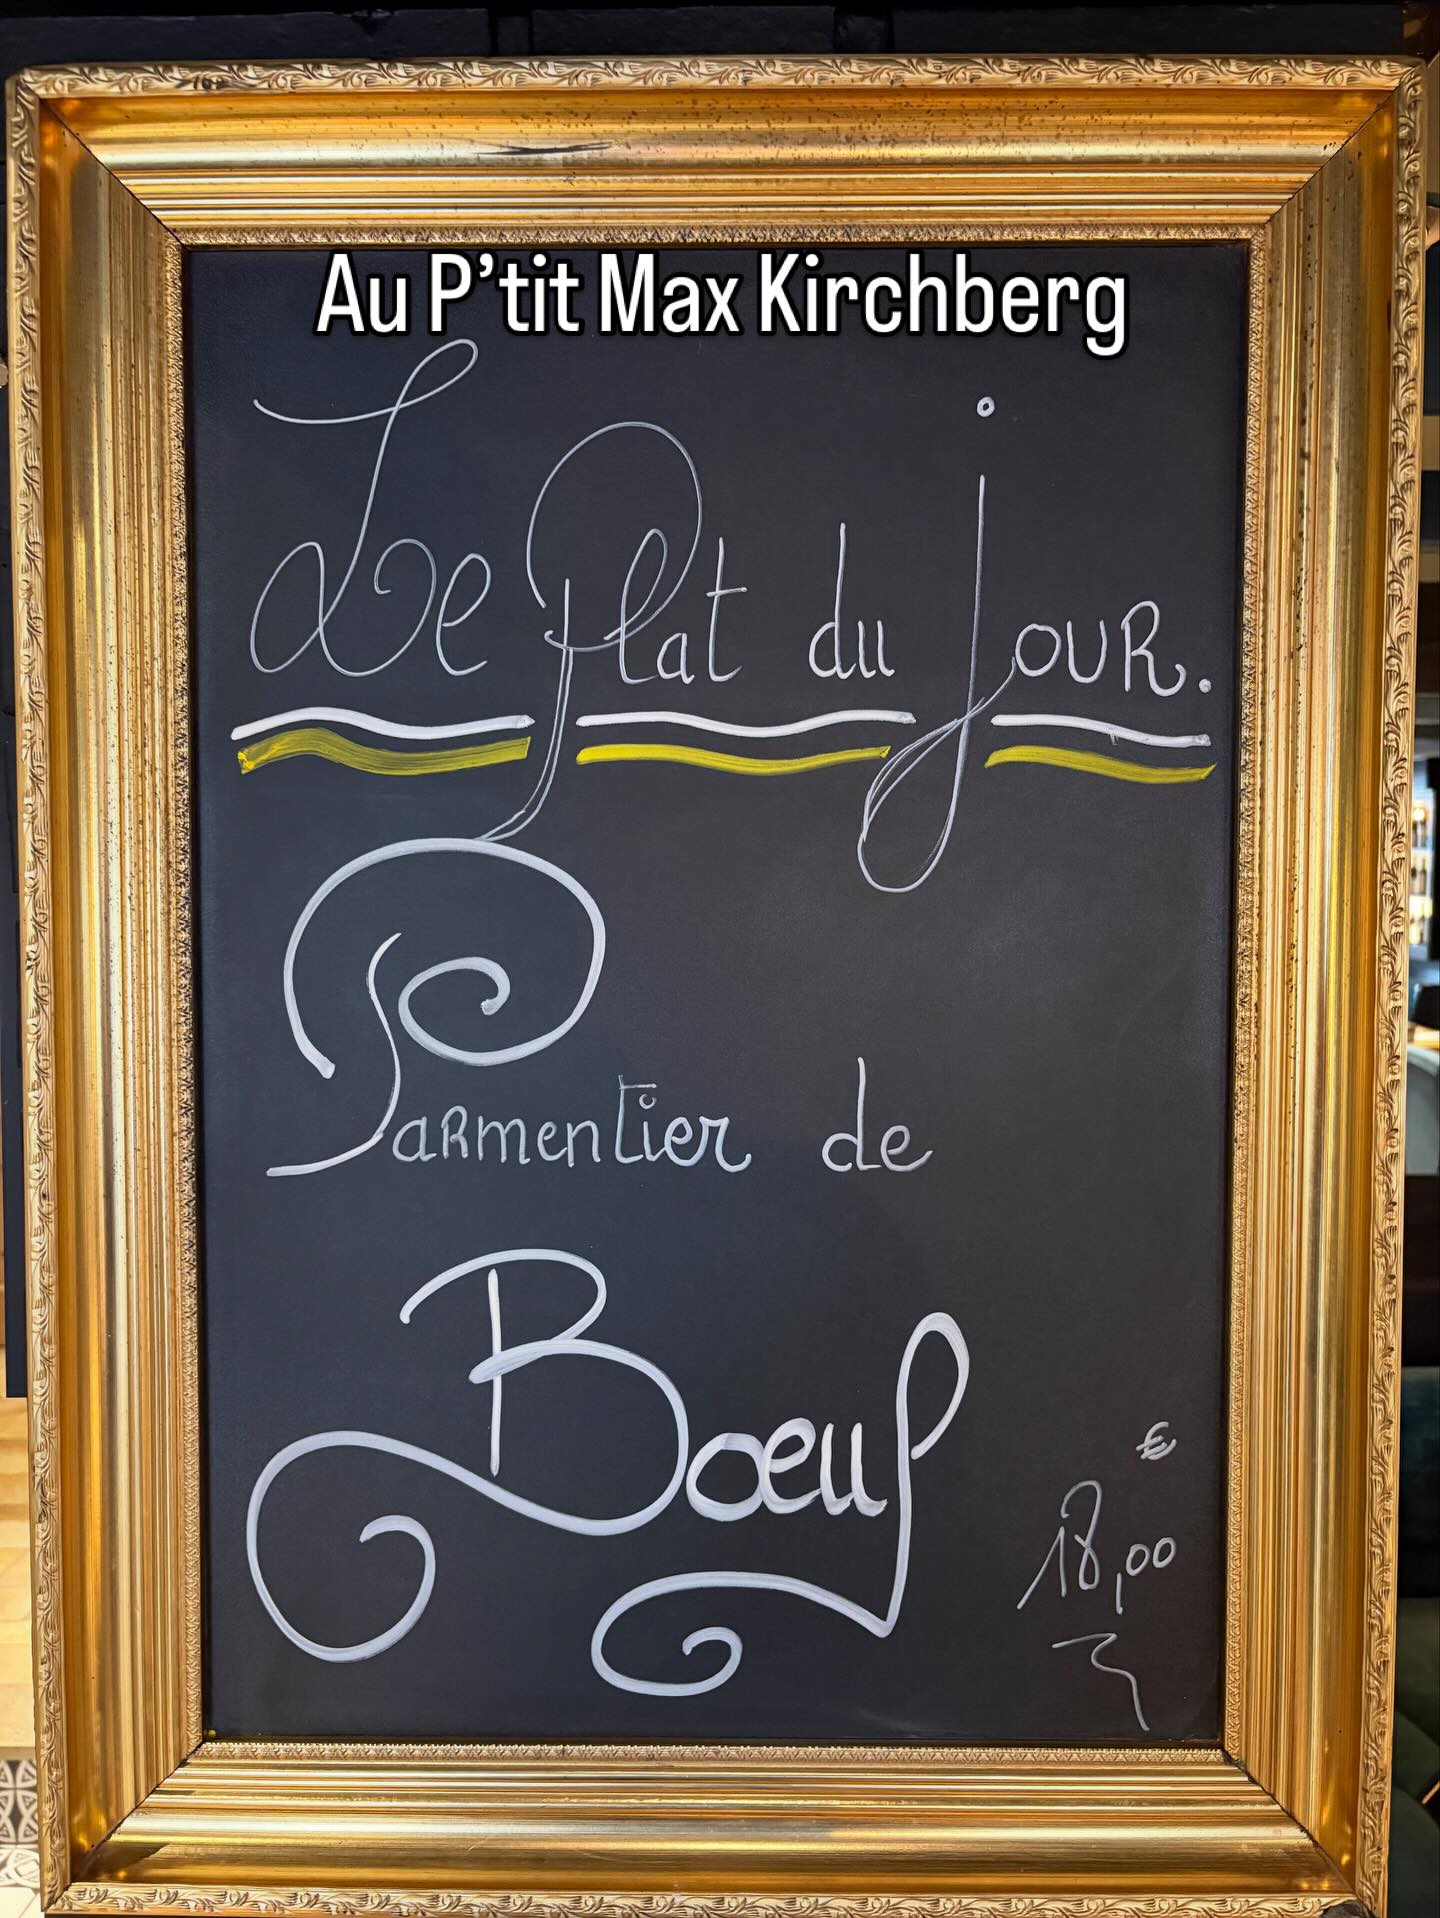 Au P'tit Max Kirchberg
Le Plat du jour.
Parmentier de
Boeuf
€
18,00